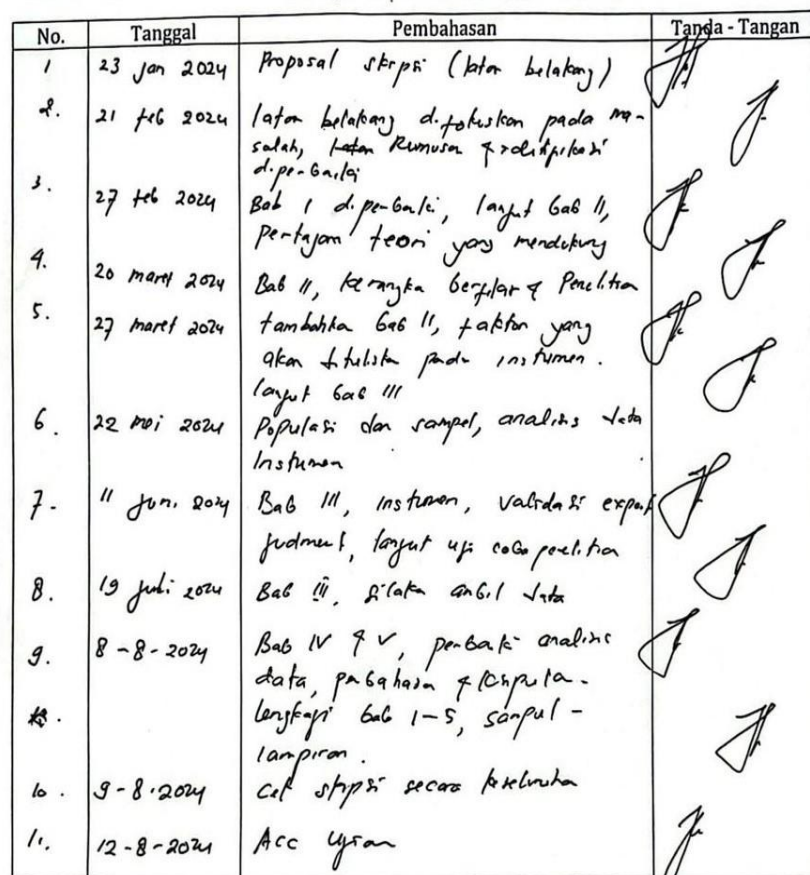 No. Tanggal Pembahasan Tanda - Tangan
1 23 Jan 2024 Proposal skripsi (latar belakang)
2. 21 feb 2024 latar belakang difokuskan pada ma-
salah, Rumusan &
diperbaiki
3. 27 feb 2024 Bab I diperbaiki, lanjut bab II,
pertajam teori yang mendukung
4. 20 maret 2024 Bab II, kerangka berfikir & Penelitian
5. 27 maret 2024 tambahkan bab II, faktor yang
akan dituliskan pada instumen.
lanjut bab III
6. 22 mei 2024 Populasi dan sampel, analisis data
Instumen
7- 11 Juni 2024 Bab III, instumen, validasi expert
judment, lanjut uji coba penelitian
8. 19 Juli 2024 Bab III, silakan ambil data
9. 8-8-2024 Bab IV & V, perbaiki analisis
data, pembahasan & kesimpulan-
lengkapi bab 1-5, sampul-
lampiran.
10. 9-8-2024 Cek skripsi secara keseluruhan
11. 12-8-2024 Acc Ujian